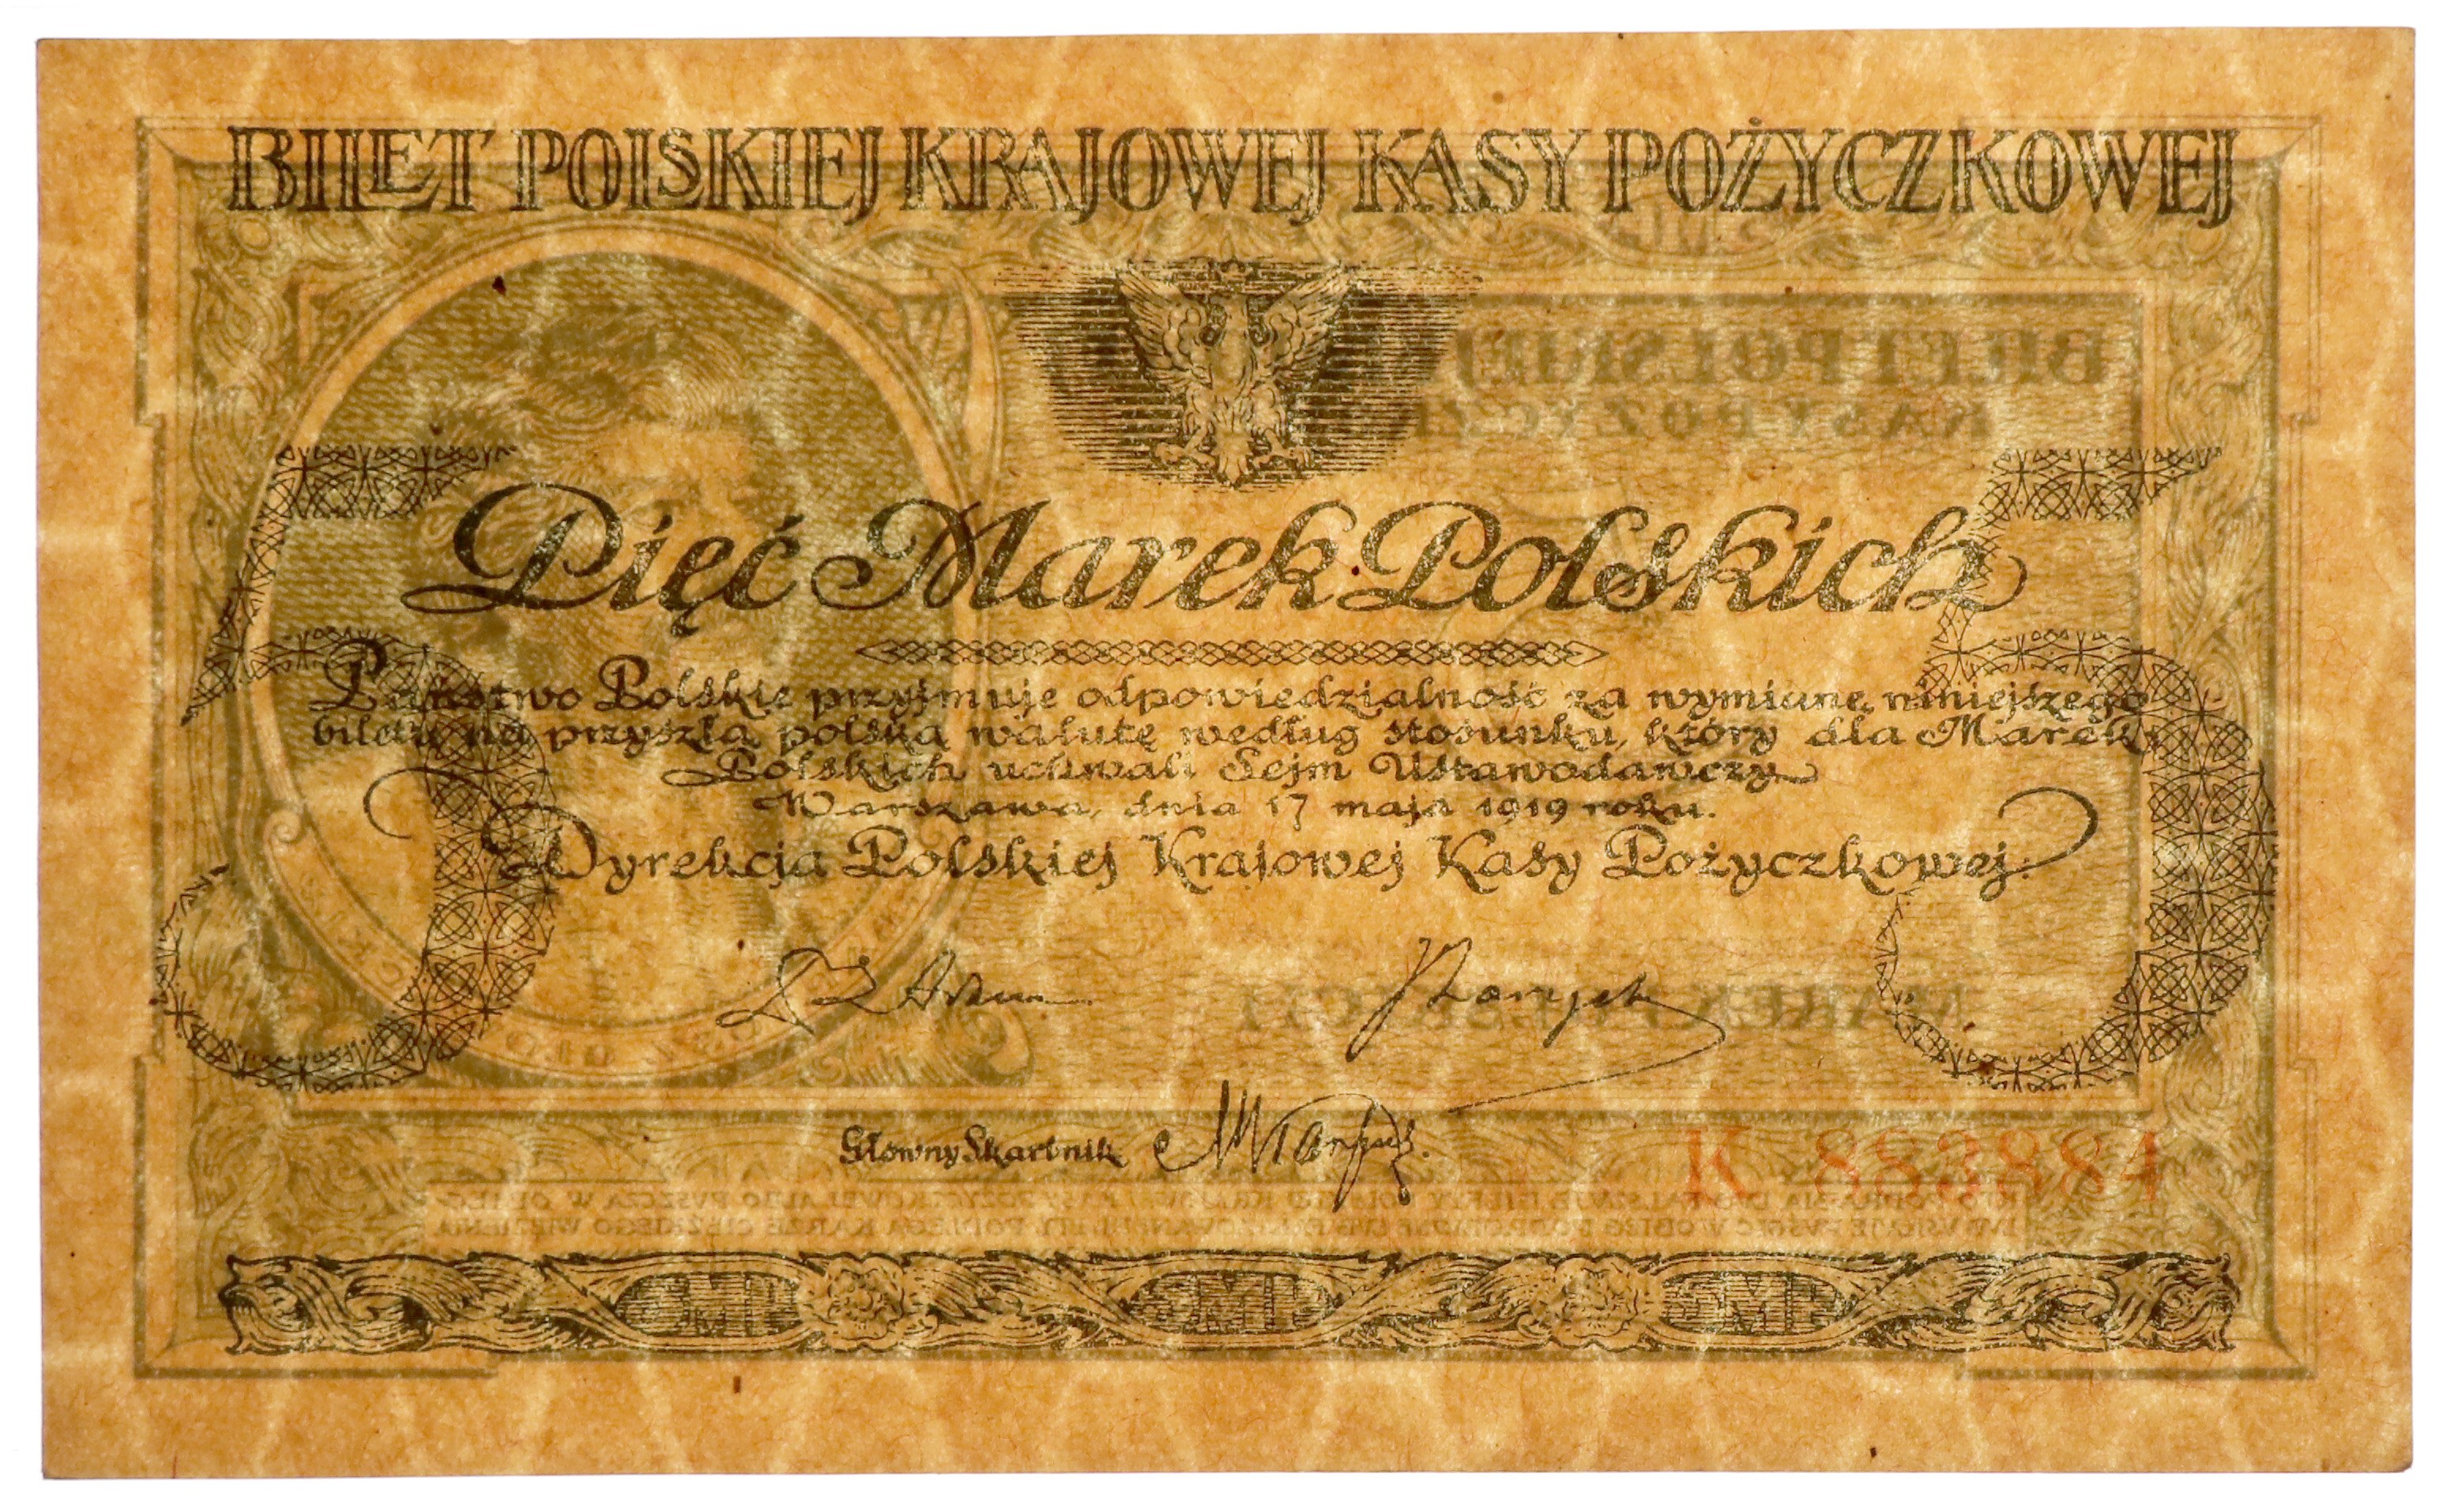 BILET POLSKIEJ KRAJOWEJ KASY POŻYCZKOWEJ
BILET POLSKIEJ
KASY POŻYCZ
Pięć Marek Polskich
5 5
Państwo Polskie przyjmuje odpowiedzialność za wymianę niniejszego
biletu na przyszłą polską walutę według stosunku, który dla Marek
Polskich uchwali Sejm Ustawodawczy
Warszawa, dnia 17 maja 1919 roku.
Dyrekcja Polskiej Krajowej Kasy Pożyczkowej:
MAREK
Główny Skarbnik
K 883884
5MP 5MP 5MP